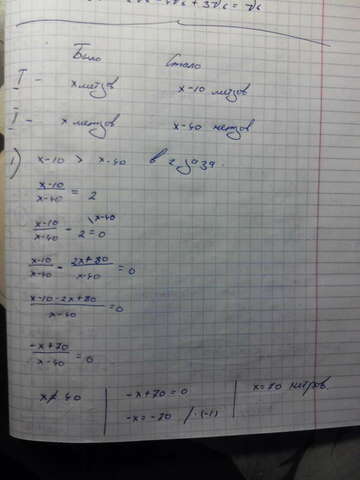 + 3√6 = √6
Было Стало
I – x метров x-10 метров
I – x метров x-40 метров
1) x-10 > x-40 в 2 раза.
x-10/x-40 = 2
x-10/x-40 - 2\x-40 = 0
x-10/x-40 - 2x+80/x-40 = 0
x-10-2x+80/x-40 = 0
-x+70/x-40 = 0
x ≠ 40 | -x+70 = 0 | x=70 метров.
-x = -70 / ·(-1)